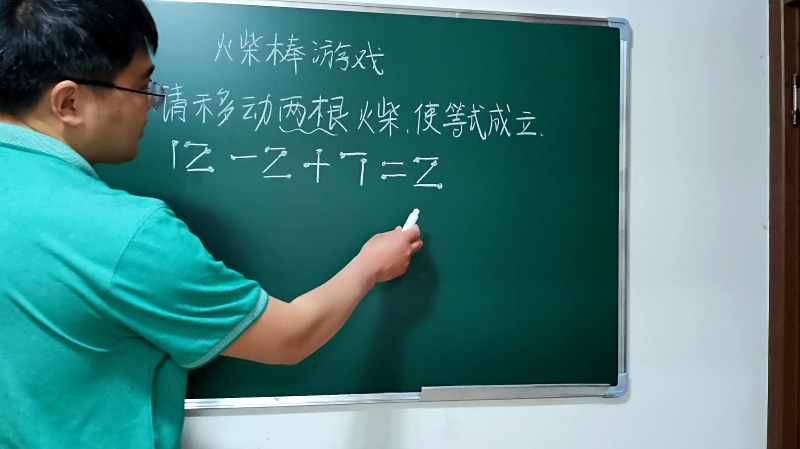 火柴棒游戏
请移动两根火柴,使等式成立.
12-2+7=2